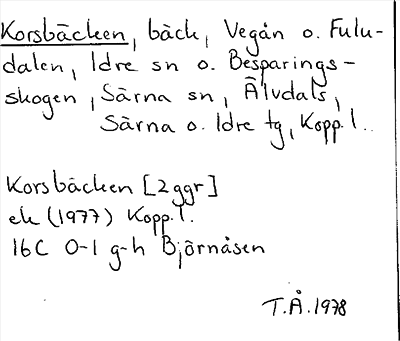 Korsbäcken, bäck, Vegån o. Fulu-
dalen, Idre sn o. Besparings-
skogen, Särna sn, Älvdals,
Särna o. Idre tg, Kopp. l.
Korsbäcken [2 ggr]
ek (1977) Kopp. l.
16C 0-1 g-h Björnåsen
T.Å. 1978